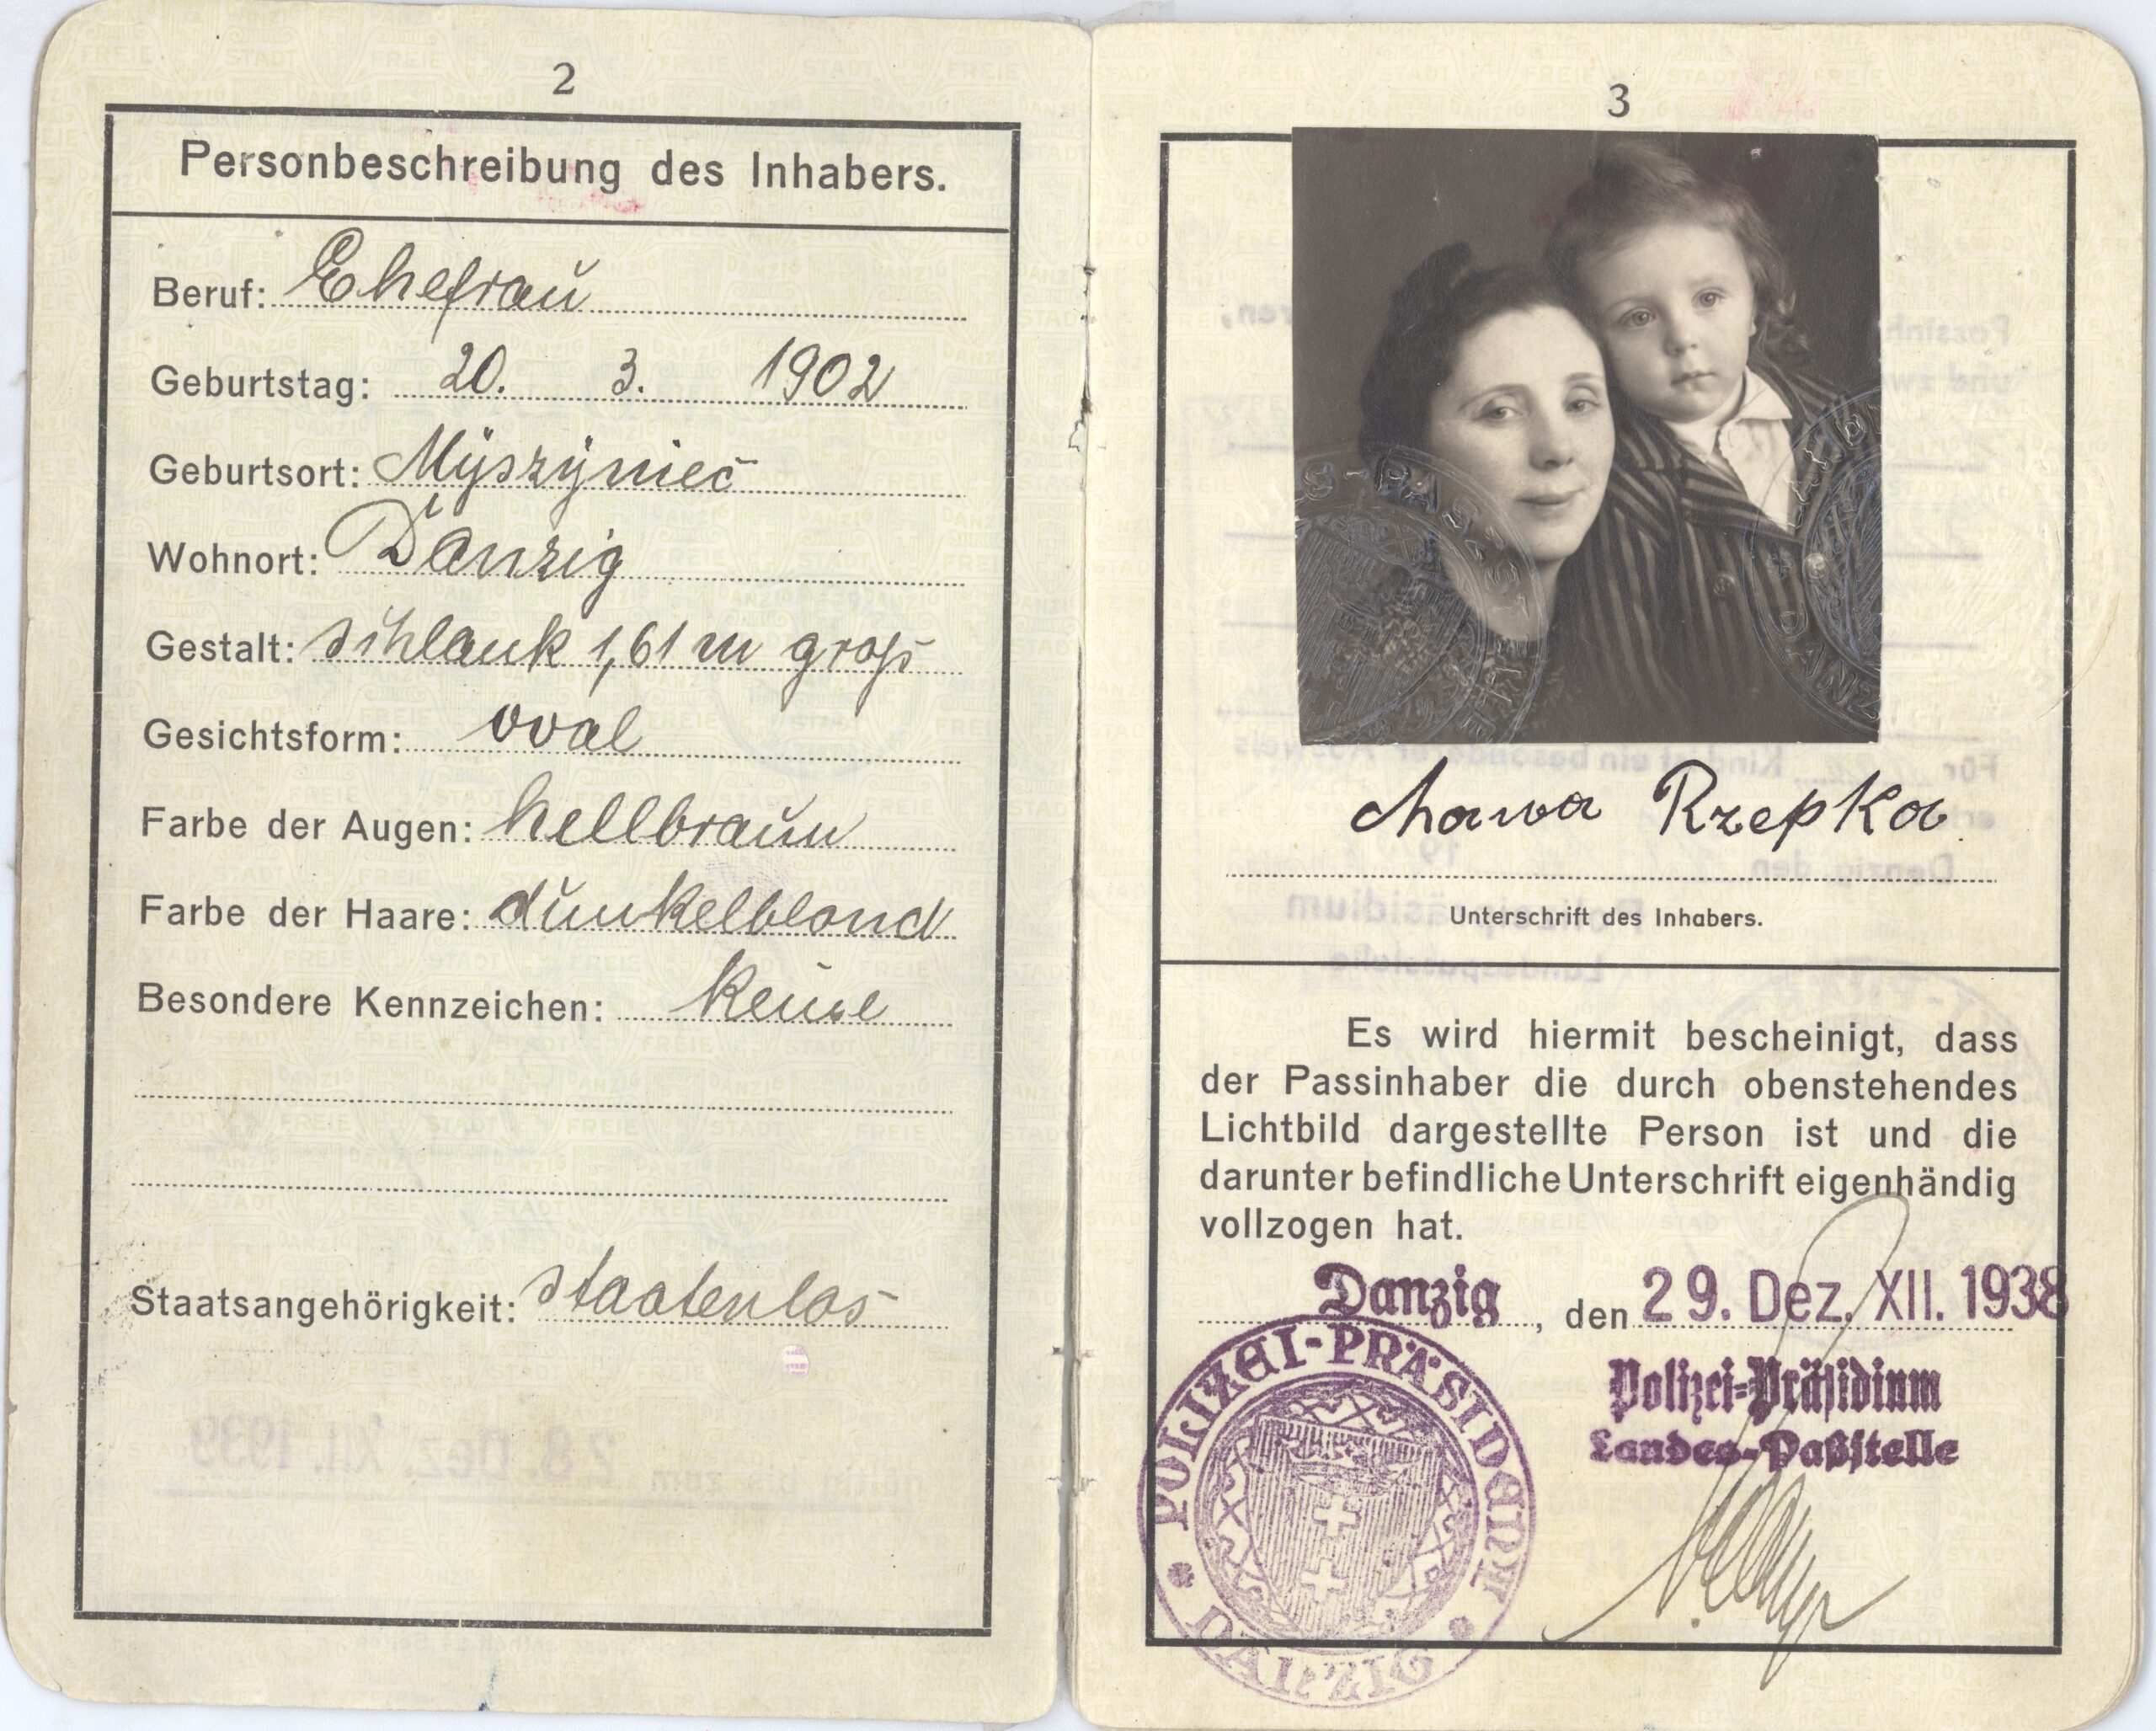 2
Personbeschreibung des Inhabers.
Beruf: Ehefrau
Geburtstag: 20. 3. 1902
Geburtsort: Myszyniec
Wohnort: Danzig
Gestalt: schlank 1,61 m groß
Gesichtsform: oval
Farbe der Augen: hellbraun
Farbe der Haare: dunkelblond
Besondere Kennzeichen: keine
Staatsangehörigkeit: staatenlos
3
Chawa Rzepka
Unterschrift des Inhabers.
Es wird hiermit bescheinigt, dass
der Passinhaber die durch obenstehendes
Lichtbild dargestellte Person ist und die
darunter befindliche Unterschrift eigenhändig
vollzogen hat.
Danzig, den 29. Dez. XII. 1938
Polizei-Präsidium
Landes-Paßstelle
POLIZEI-PRÄSIDENT
DANZIG